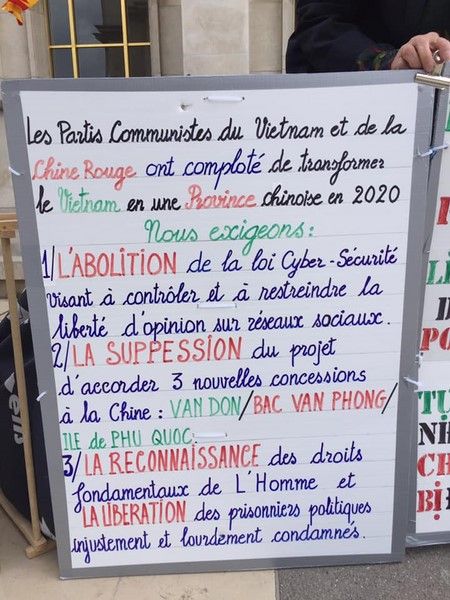 Les Partis Communistes du Vietnam et de la
Chine Rouge ont comploté de transformer
le Vietnam en une Province chinoise en 2020
Nous exigeons:
1/ L'ABOLITION de la loi Cyber-Sécurité
visant à contrôler et à restreindre la
liberté d'opinion sur réseaux sociaux.
2/ LA SUPPESSION du projet
d'accorder 3 nouvelles concessions
à la Chine: VAN DON/BAC VAN PHONG/
ILE de PHU QUOC.
3/ LA RECONNAISSANCE des droits
fondamentaux de L'Homme et
LA LIBERATION des prisonniers politiques
injustement et lourdement condamnés.